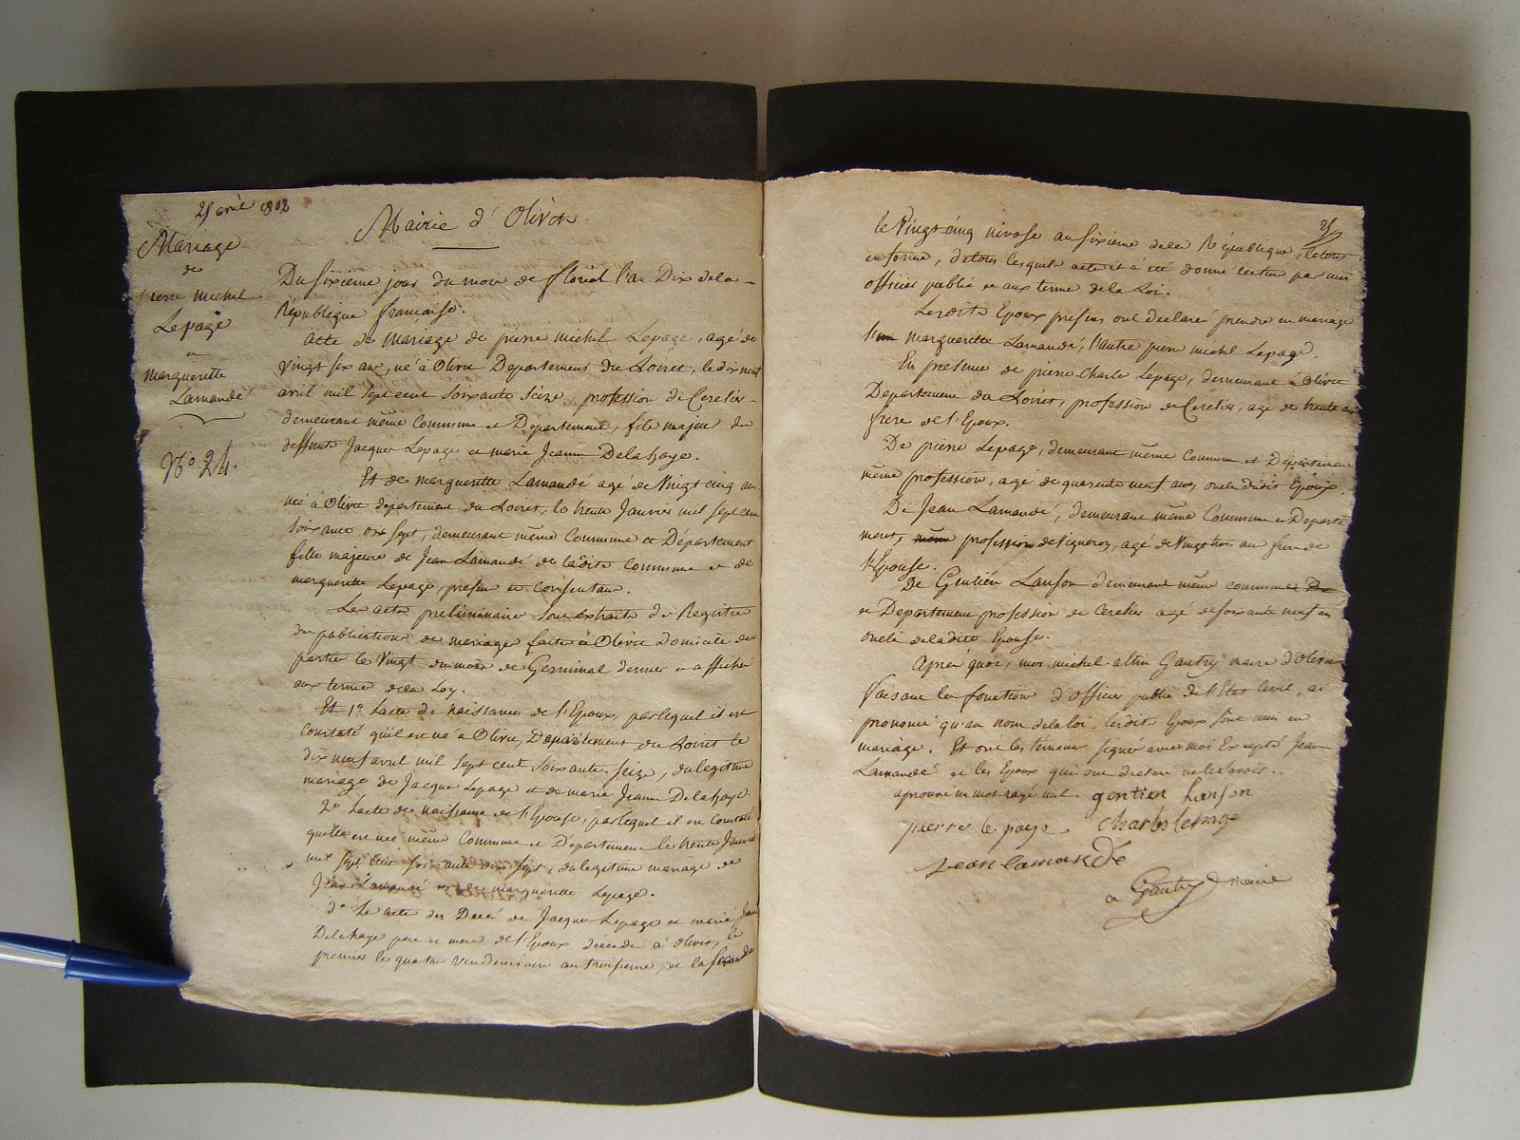 25 avril 1802
Mairie d'Olivet
Mariage
de
pierre michel
Lepage
et
marguerette
Lamandé
N° 24.
Du sixieme jour du mois de floréal l'an Dix de la
République française.
acte de Mariage de pierre michel Lepage, agé de
vingt six ans, né à Olivet Departement du Loiret, le dix neuf
avril mil sept cent soixante seize, profession de Cerclier
demeurant même Commune et Departement, fils majeur de
deffunts Jacques Lepage et marie Jeanne Delahaye.
Et de marguerette Lamandé agé de vingt cinq ans
née à Olivet departement du Loiret, le trente Janvier mil sept cent
soixante dix sept, demeurant même Commune et Département
fille majeure de Jean Lamandé de ladite Commune et de
marguerette Lepage, présens et consentans.
Les actes préliminaires sont extraits des Registres
de publications de mariages faites à Olivet domicile des
parties le vingt du mois de Germinal dernier et affiché
aux termes de la Loy.
Et 1° l'acte de naissance de l'Epoux, par lequel il est
constaté qu'il est né à Olivet, Departement du Loiret le
dix neuf avril mil sept cent soixante seize, du legitime
mariage de Jacque Lepage et de marie Jeanne Delahaye
2° l'acte de naissance de l'Epouse, par lequel il est constaté
qu'elle est née même Commune et Département le trente Janvier
mil sept cent soixante dix sept, du legitime mariage de
Jean Lamandé et de marguerette Lepage.
3° Les actes des Decès de Jacques Lepage et marie Jeanne
Delahaye pere et mere de l'Epoux décédés à Olivet, le
premier le quatre vendemiaire an troisieme, et la seconde
25
le Vingt cinq nivose an sixieme de la République, le tout
en forme, de tous lesquels actes il a été donné lecture par moi
officier public et aux termes de la Loi.
Lesdits Epoux présens ont déclaré prendre en mariage
l'un marguerette Lamandé, l'autre pierre michel Lepage.
En présence de pierre Charle Lepage, demeurant à Olivet
Departement du Loiret, profession de Cerclier, agé de trente ans
frere de l'Epoux.
De pierre Lepage, demeurant même Commune et Département
même profession, agé de quarente neuf ans, oncle dudit Epoux.
De Jean Lamandé, demeurant même Commune et Departe
ment, même profession de Vigneron, agé de vingt trois ans frere de
l'Epouse.
De Gentien Lanson demeurant même commune De
et Departement profession de Cerclier agé de soixante neuf ans
oncle de ladite Epouse.
Après quoi, moi michel Gautry maire d'Olivet
faisant les fonctions d'officier public de l'Etat Civil, ai
prononcé qu'au nom de la loi, lesdits Epoux sont unis en
mariage. Et ont les témoins signés avec moi Excepté Jean
Lamandé et les Epoux qui ont declaré ne le savoir.
aprouvé un mot rayé nul. gentien Lanson
pierre le page charles lepage
jean lamandé
Gautry maire